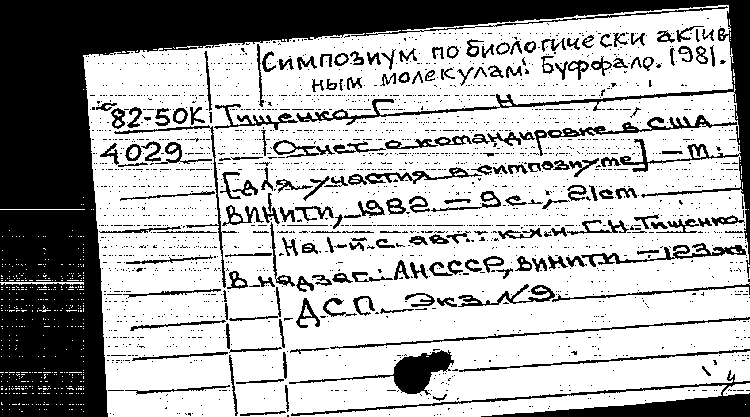 Симпозиум по биологически актив
ным молекулам. Буффало. 1981.
82-50К Тищенко, Г Н
4029 Отчет о командировке в США
[для участия в симпозиуме] – М.:
ВИНИТИ, 1982. – 9 с.; 21 cm.
На 1-й с. авт.: к.х.н. Г.Н. Тищенко.
В надзаг.: АНСССР, ВИНИТИ. – 123 экз
ДСП. Экз. №9.